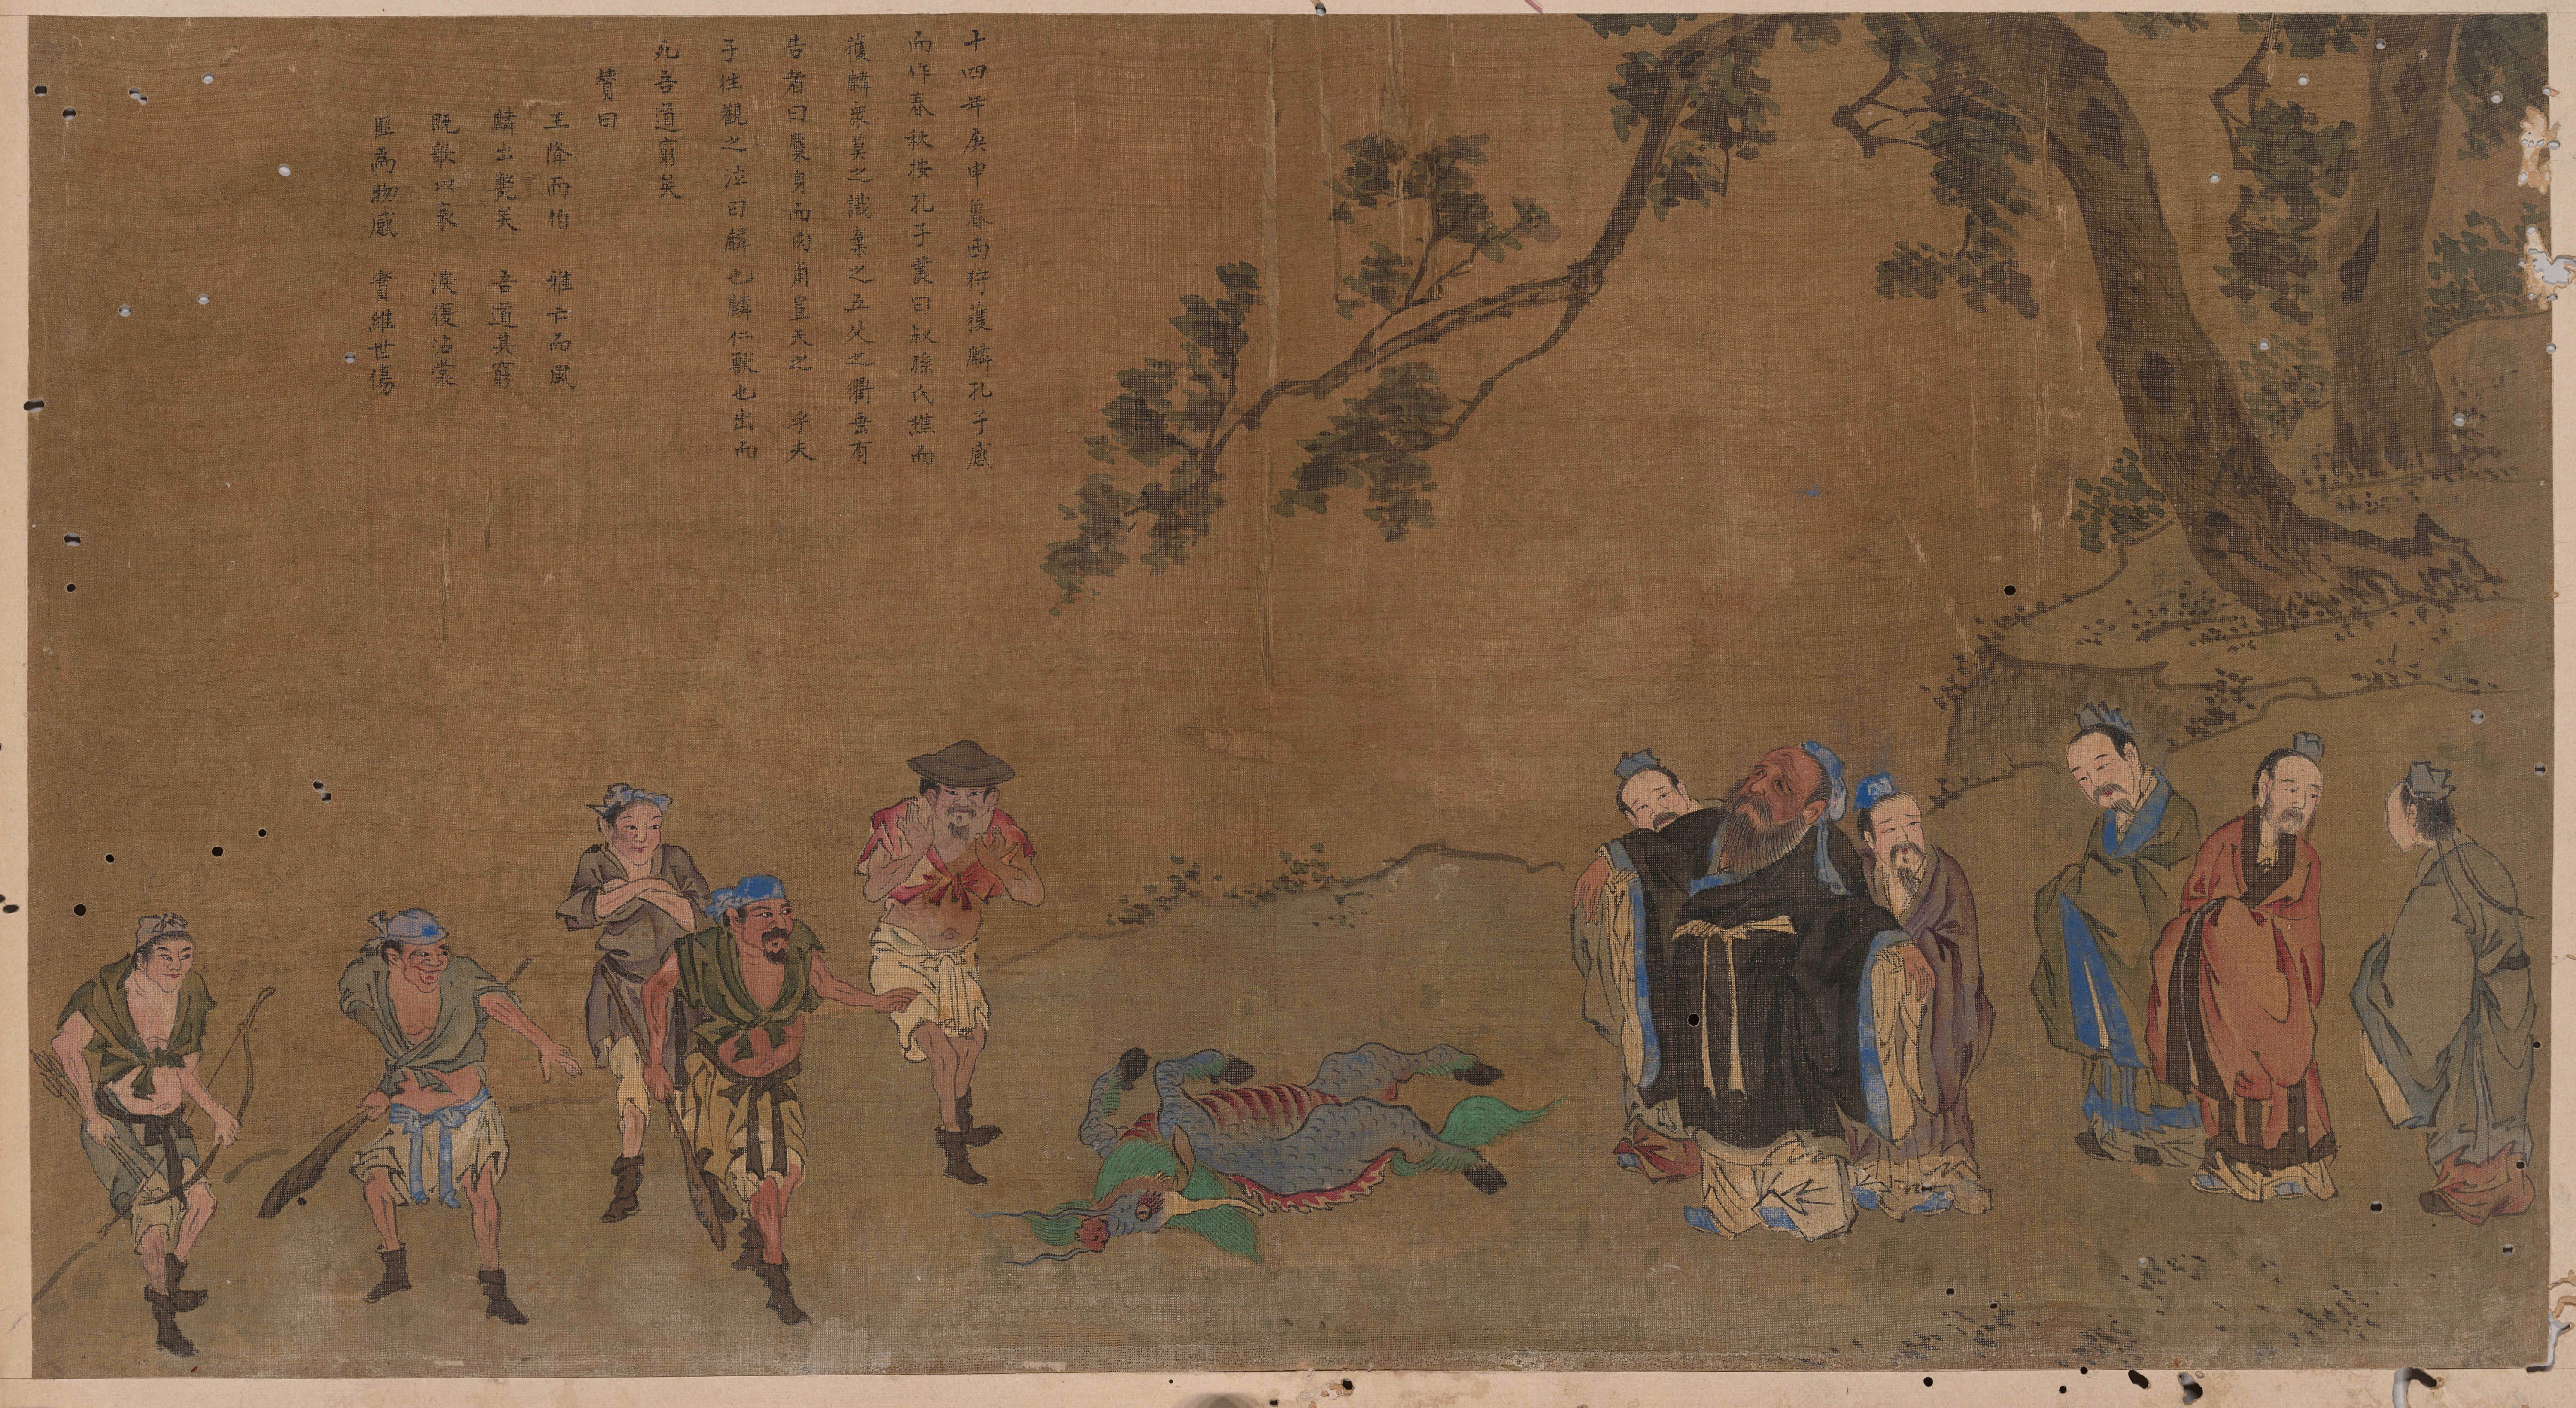 十四年庚申春西狩獲麟孔子感
而作春秋按孔子叢曰叔孫氏樵而
獲麟衆莫之識棄之五父之衢冉有
告者曰麇身而肉角豈天之 乎夫
子往觀之泣曰麟也麟仁獸也出而
死吾道窮矣
贊曰
王降而伯 雅亡而風
麟出斃矣 吾道其窮
既歌以哀 涙復沾裳
匪爲物感 實維世傷